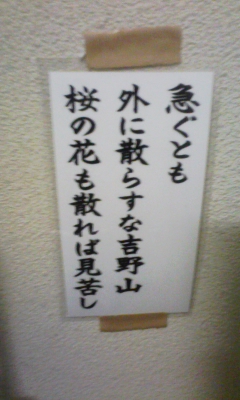 急ぐとも
外に散らすな吉野山
桜の花も散れば見苦し